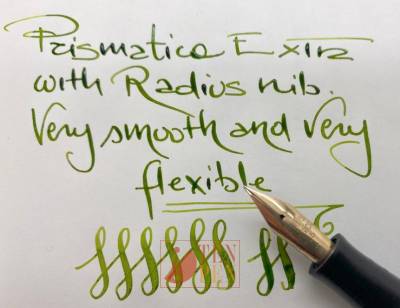 Prismatico Extra
with Radius nib.
Very smooth and very
flexible